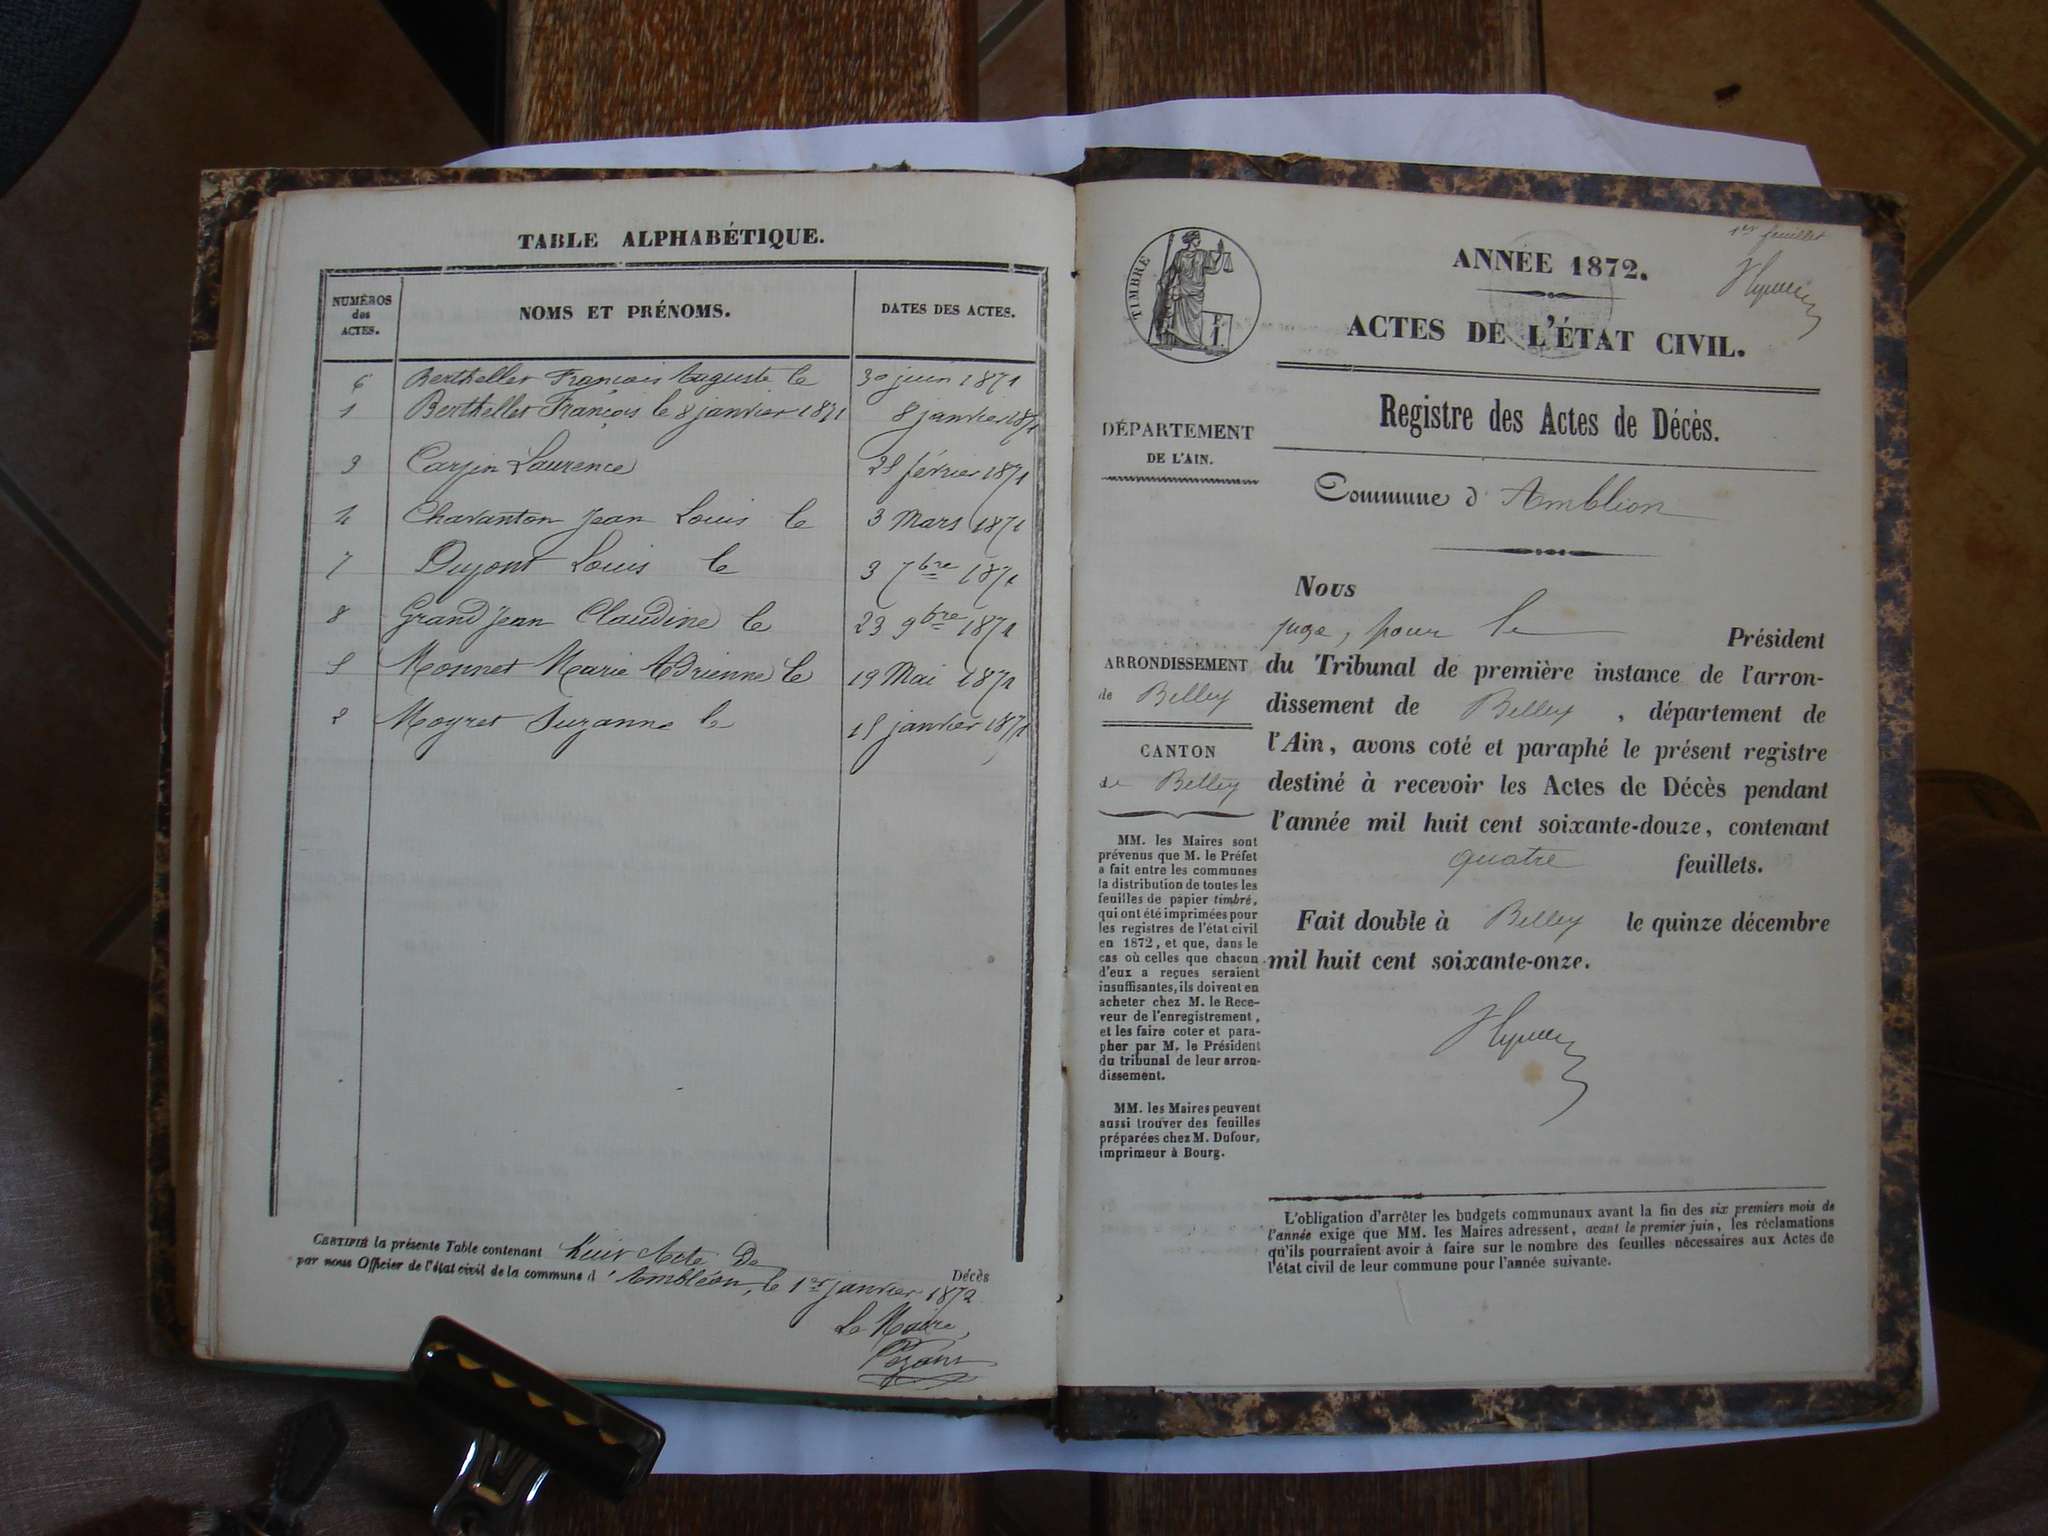 TABLE ALPHABÉTIQUE.
NUMÉROS des ACTES.
NOMS ET PRÉNOMS.
DATES DES ACTES.
6 Berthellet François Auguste le 30 juin 1871
1 Berthellet François le 8 janvier 1871 8 janvier 1871
3 Carjin Laurence 25 février 1871
4 Chavanton Jean Louis le 3 Mars 1871
7 Dupont Louis le 3 7bre 1871
8 Grand Jean Claudine le 23 9bre 1871
5 Monnet Marie Adrienne le 19 Mai 1871
2 Moyret Suzanne le 15 janvier 1871
CERTIFIÉ la présente Table contenant huit Acte De Décès
par nous Officier de l'état civil de la commune d'Ambléon, le 1er janvier 1872
Le Maire,
TIMBRE
1er feuillet
ANNÉE 1872.
ACTES DE L'ÉTAT CIVIL.
Registre des Actes de Décès.
DÉPARTEMENT
DE L'AIN.
Commune d'Ambléon
ARRONDISSEMENT
de Belley
CANTON
de Belley
MM. les Maires sont
prévenus que M. le Préfet
a fait entre les communes
la distribution de toutes les
feuilles de papier timbré,
qui ont été imprimées pour
les registres de l'état civil
en 1872, et que, dans le
cas où celles que chacun
d'eux a reçues seraient
insuffisantes, ils doivent en
acheter chez M. le Rece-
veur de l'enregistrement,
et les faire coter et para-
pher par M. le Président
du tribunal de leur arron-
dissement.
MM. les Maires peuvent
aussi trouver des feuilles
préparées chez M. Dufour,
imprimeur à Bourg.
Nous
juge, pour le Président
du Tribunal de première instance de l'arron-
dissement de Belley, département de
l'Ain, avons coté et paraphé le présent registre
destiné à recevoir les Actes de Décès pendant
l'année mil huit cent soixante-douze, contenant
quatre feuillets.
Fait double à Belley le quinze décembre
mil huit cent soixante-onze.
L'obligation d'arrêter les budgets communaux avant la fin des six premiers mois de
l'année exige que MM. les Maires adressent, avant le premier juin, les réclamations
qu'ils pourraient avoir à faire sur le nombre des feuilles nécessaires aux Actes de
l'état civil de leur commune pour l'année suivante.